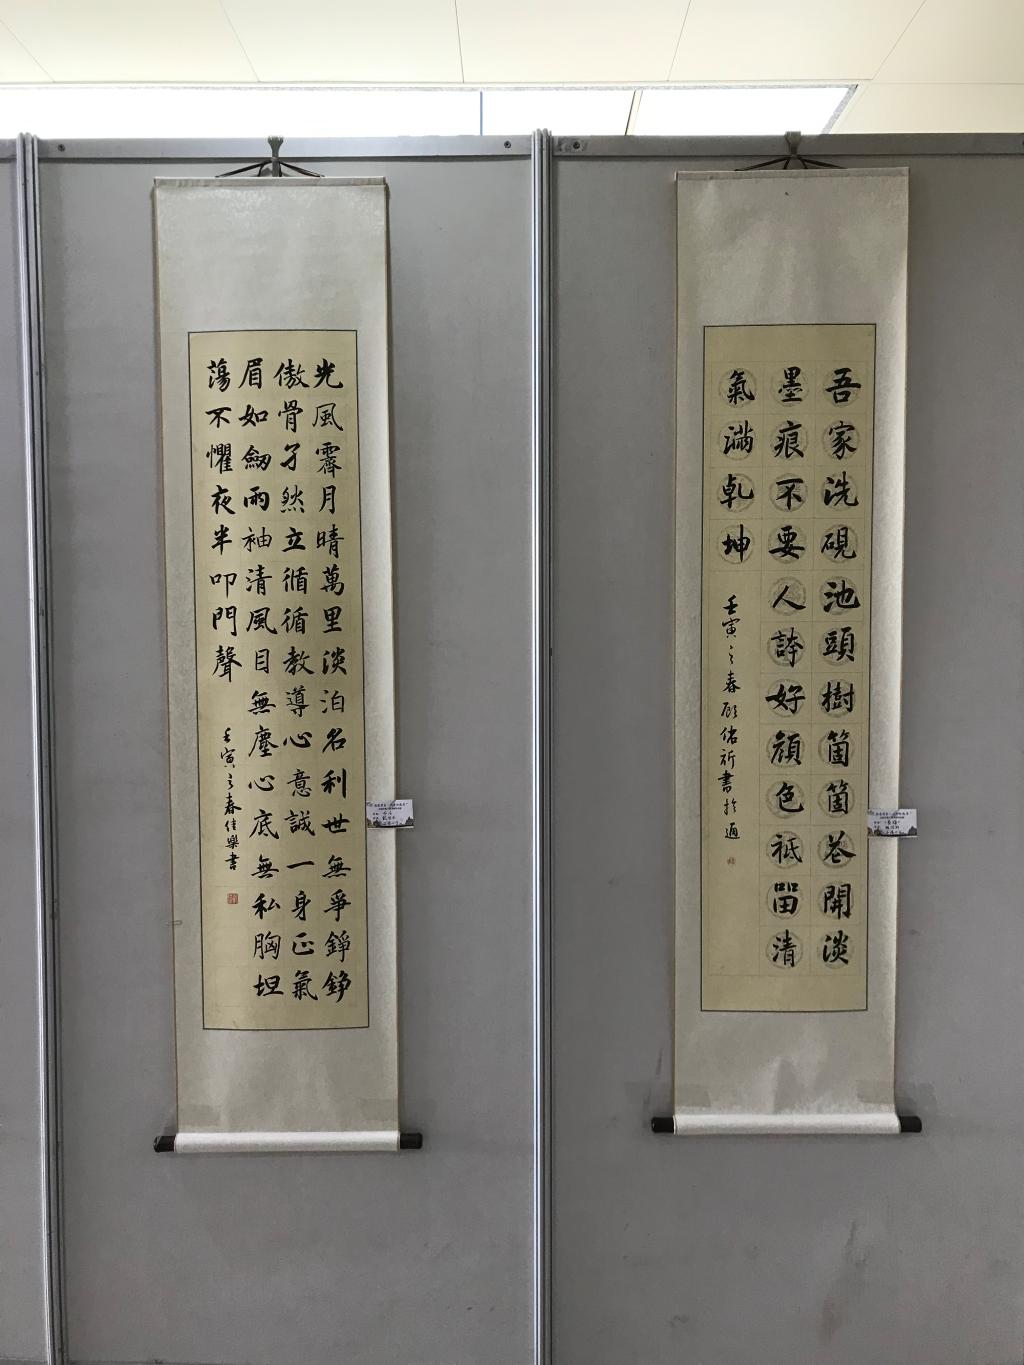 光風霽月晴萬里淡泊名利世無爭錚錚
傲骨孑然立循循教導心意誠一身正氣
眉如劒兩袖清風目無塵心底無私胸坦
蕩不懼夜半叩門聲
壬寅之春佳樂書
吾家洗硯池頭樹箇箇花開淡
墨痕不要人誇好顔色祗留清
氣滿乾坤
壬寅之春顧佑祈書於通